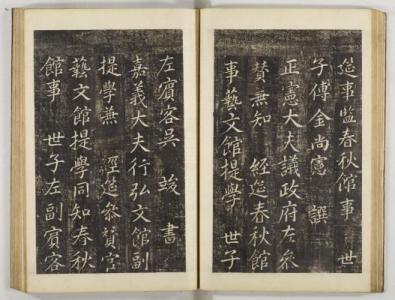 筵事監春秋館事 世
子傅金尚憲 譔
正憲大夫議政府左叅
賛兼知 經筵春秋館
事藝文館提學 世子
左賓客吳 竣 書
嘉義大夫行弘文館副
提學兼 經筵叅賛官
藝文館提學同知春秋
館事 世子左副賓客